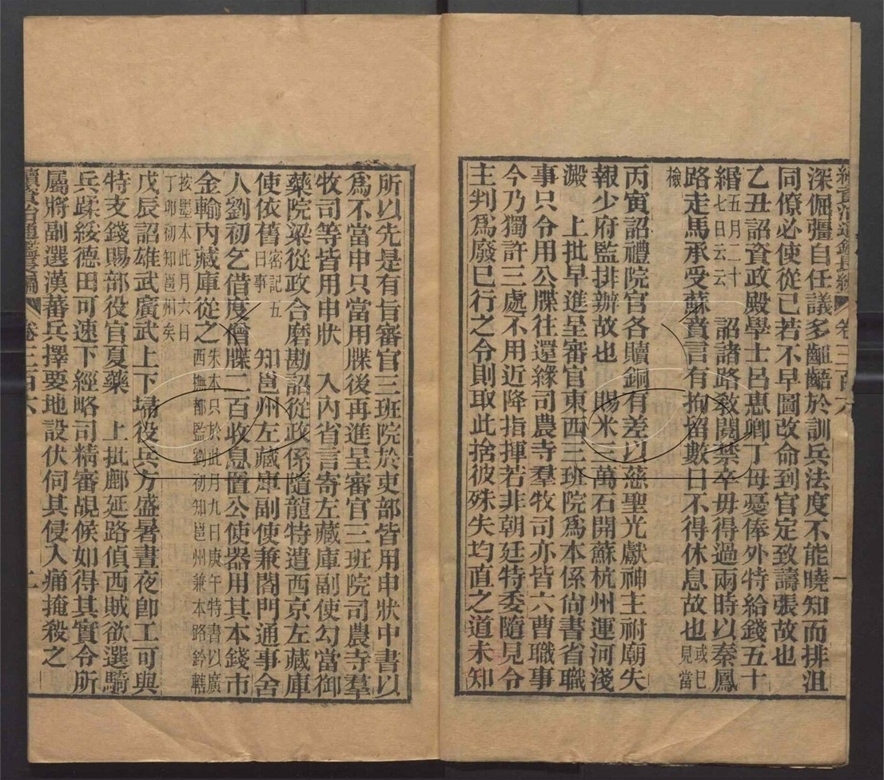 深倔彊自任議多齟齬於訓兵法度不能曉知而排沮
同僚必使從已若不早圖改命到官定致譸張故也
乙丑詔資政殿學士呂惠卿丁母憂俸外特給錢五十
緡五月二十七日云云 詔諸路敎閱禁卒毋得過兩時以秦鳳
路走馬承受蘇賁言有拘留數日不得休息故也或已見當
檢
丙寅詔禮院官各贖銅有差以慈聖光獻神主祔廟失
報少府監排辦故也 賜米三萬石開蘇杭州運河淺
澱 上批早進呈審官東西三班院爲本係尙書省職
事只令用公牒往還緣司農寺羣牧司亦皆六曹職事
今乃獨許三處不用近降指揮若非朝廷特委隨見令
主判爲廢已行之令則取此捨彼殊失均直之道未知
續資治通鑑長編 卷三百六 一
所以先是有旨審官三班院於吏部皆用申狀中書以
爲不當申只當用牒後再進呈審官三班院司農寺羣
牧司等皆用申狀 入內省言寄左藏庫副使勾當御
藥院梁從政合磨勘詔從政係隨龍特遣西京左藏庫
使依舊密記五日事 知邕州左藏庫副使兼閤門通事舍
人劉初乞借度僧牒二百收息置公使器用其本錢市
金輸內藏庫從之朱本只於此月九日庚午特書以廣西撫都監劉初知邕州兼本路鈐轄
按墨本此月六日丁卯初知邕州矣
戊辰詔雄武廣武上下埽役兵方盛暑晝夜卽工可與
特支錢賜部役官夏藥 上批鄜延路偵西賊欲選騎
兵蹂綏德田可速下經略司精審覘候如得其實令所
屬將副選漢蕃兵擇要地設伏伺其侵入痛掩殺之
續資治通鑑長編 卷三百六 二